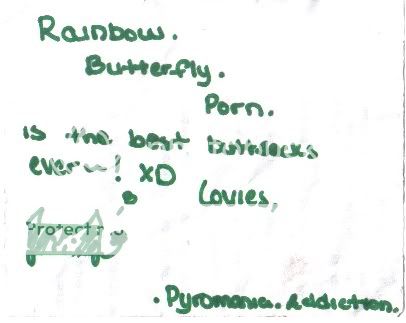 Rainbow.
Butterfly.
Porn.
is the best buttsecks
ever~! XD
Lovies,
Protect
.Pyromania.Addiction.